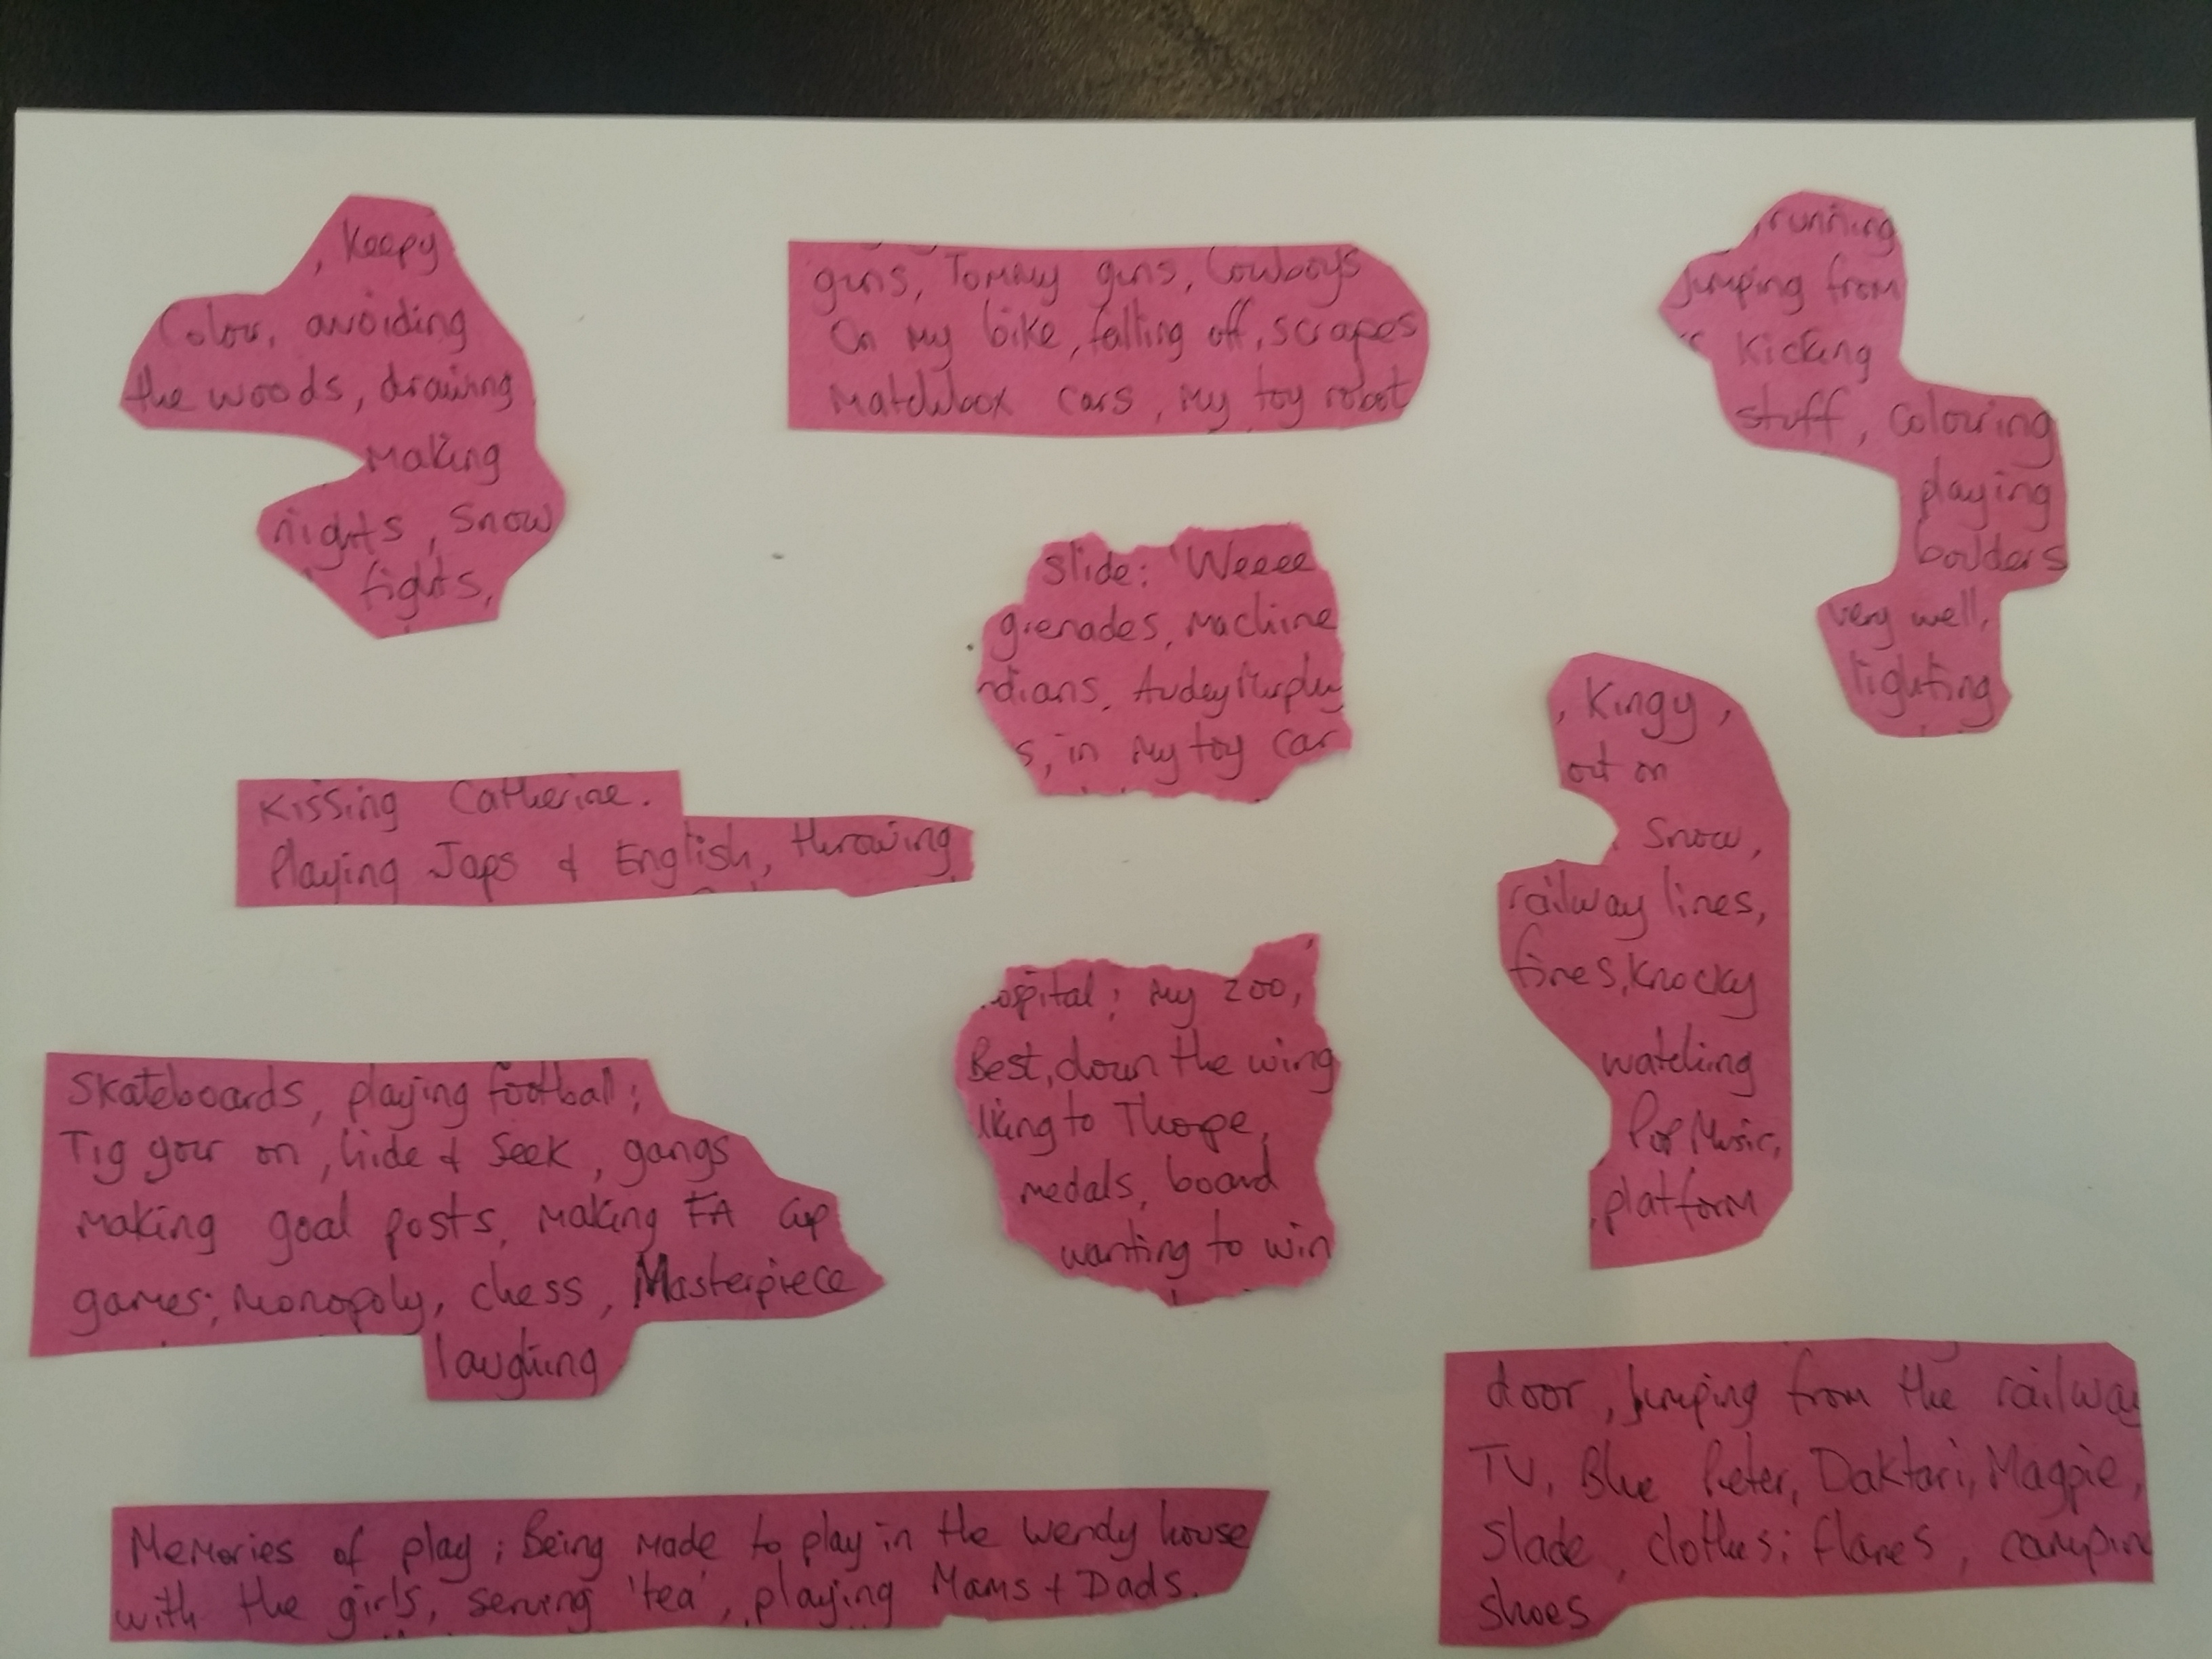 , Keepy
Colour, avoiding
the woods, drawing
making
nights, Snow
fights,
guns, Tommy guns, Cowboys
On my bike, falling off, scrapes
Matchbox cars, my toy robot
, running
Jumping from
Kicking
stuff, Colouring
playing
boulders
very well,
fighting
Slide: 'Weeee
grenades, Machine
ndians, Audey Murphy
s, in my toy car
, Kingy,
out on
Snow,
railway lines,
fires, Knocky
watching
Pop Music,
, platform
Kissing Catherine.
Playing Japs & English, throwing
ospital; my zoo,
Best, down the wing
lking to Thorpe,
medals, board
wanting to win
Skateboards, playing football;
Tig your on, hide & Seek, gangs
making goal posts, making FA Cup
games; Monopoly, chess, Masterpiece
laughing
door, Jumping from the railway
TV, Blue Peter, Daktari, Magpie,
Slade, clothes; flares, campin
shoes
Memories of play; Being made to play in the wendy house
with the girls, serving 'tea', playing Mams + Dads.